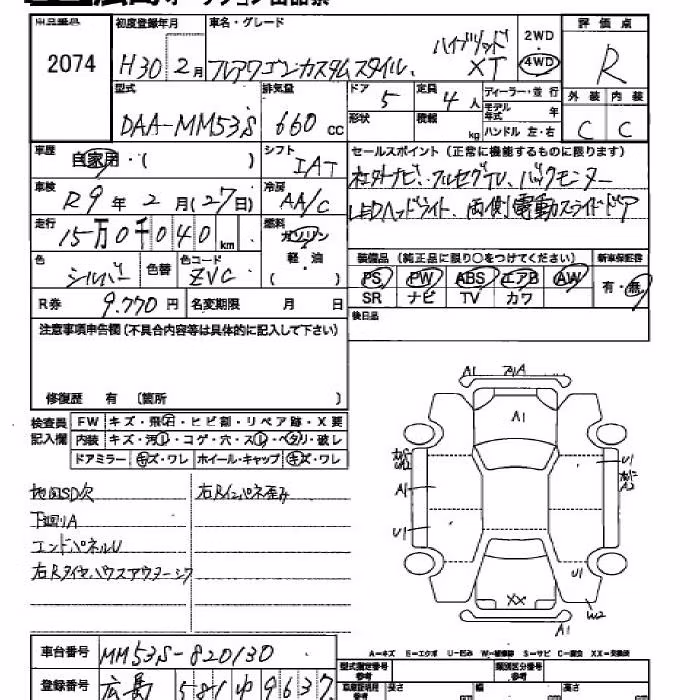 2074
初度登録年月
H30 2月
車名・グレード
ハイブリッド
フレアワゴンカスタムスタイル、XT
2WD
4WD
評価点
R
外装 内装
C C
型式
DAA-MM53S
排気量
660 cc
ドア
5
定員
4人
形状
積載
kg
ディーラー・並行
モデル年式 年
ハンドル 左・右
車歴
自家用・( )
シフト
IAT
セールスポイント（正常に機能するものに限ります）
社外ナビ、フルセグTV、バックモニター
LEDヘッドライト、両側電動スライドドア
車検
R9年2月(27日)
冷房
AA/C
走行
15万0千040km
燃料
ガソリン
軽・油
( )
色
シルバー
色替
色コード
ZVC
装備品（純正品に限り○をつけてください）
新車保証書
PS PW ABS エアB AW
有・無
SR ナビ TV カワ
R券 9.770円
名変期限 月 日
後日品
注意事項申告欄（不具合内容等は具体的に記入して下さい）
修復歴 有 〔箇所 〕
検査員記入欄
FW キズ・飛石・ヒビ割・リペア跡・X要
内装 キズ・汚れ・コゲ・穴・スレ・ヘタリ・破レ
ドアミラー キズ・ワレ ホイール・キャップ キズ・ワレ
地図SD欠
右Rインパネ歪み
下回りA
エンドパネルU
右Rタイヤハウスアウターシワ
A1
A1
A1
U1
U1
A2
U1
XX
W2
A1
A=キズ E=エクボ U=凹み W=補修跡 S=サビ C=腐食 XX=交換済
車台番号 MM53S-820130
登録番号 広島 581ゆ9637
型式指定番号
参考
類別区分番号
参考
長さ
幅
高さ